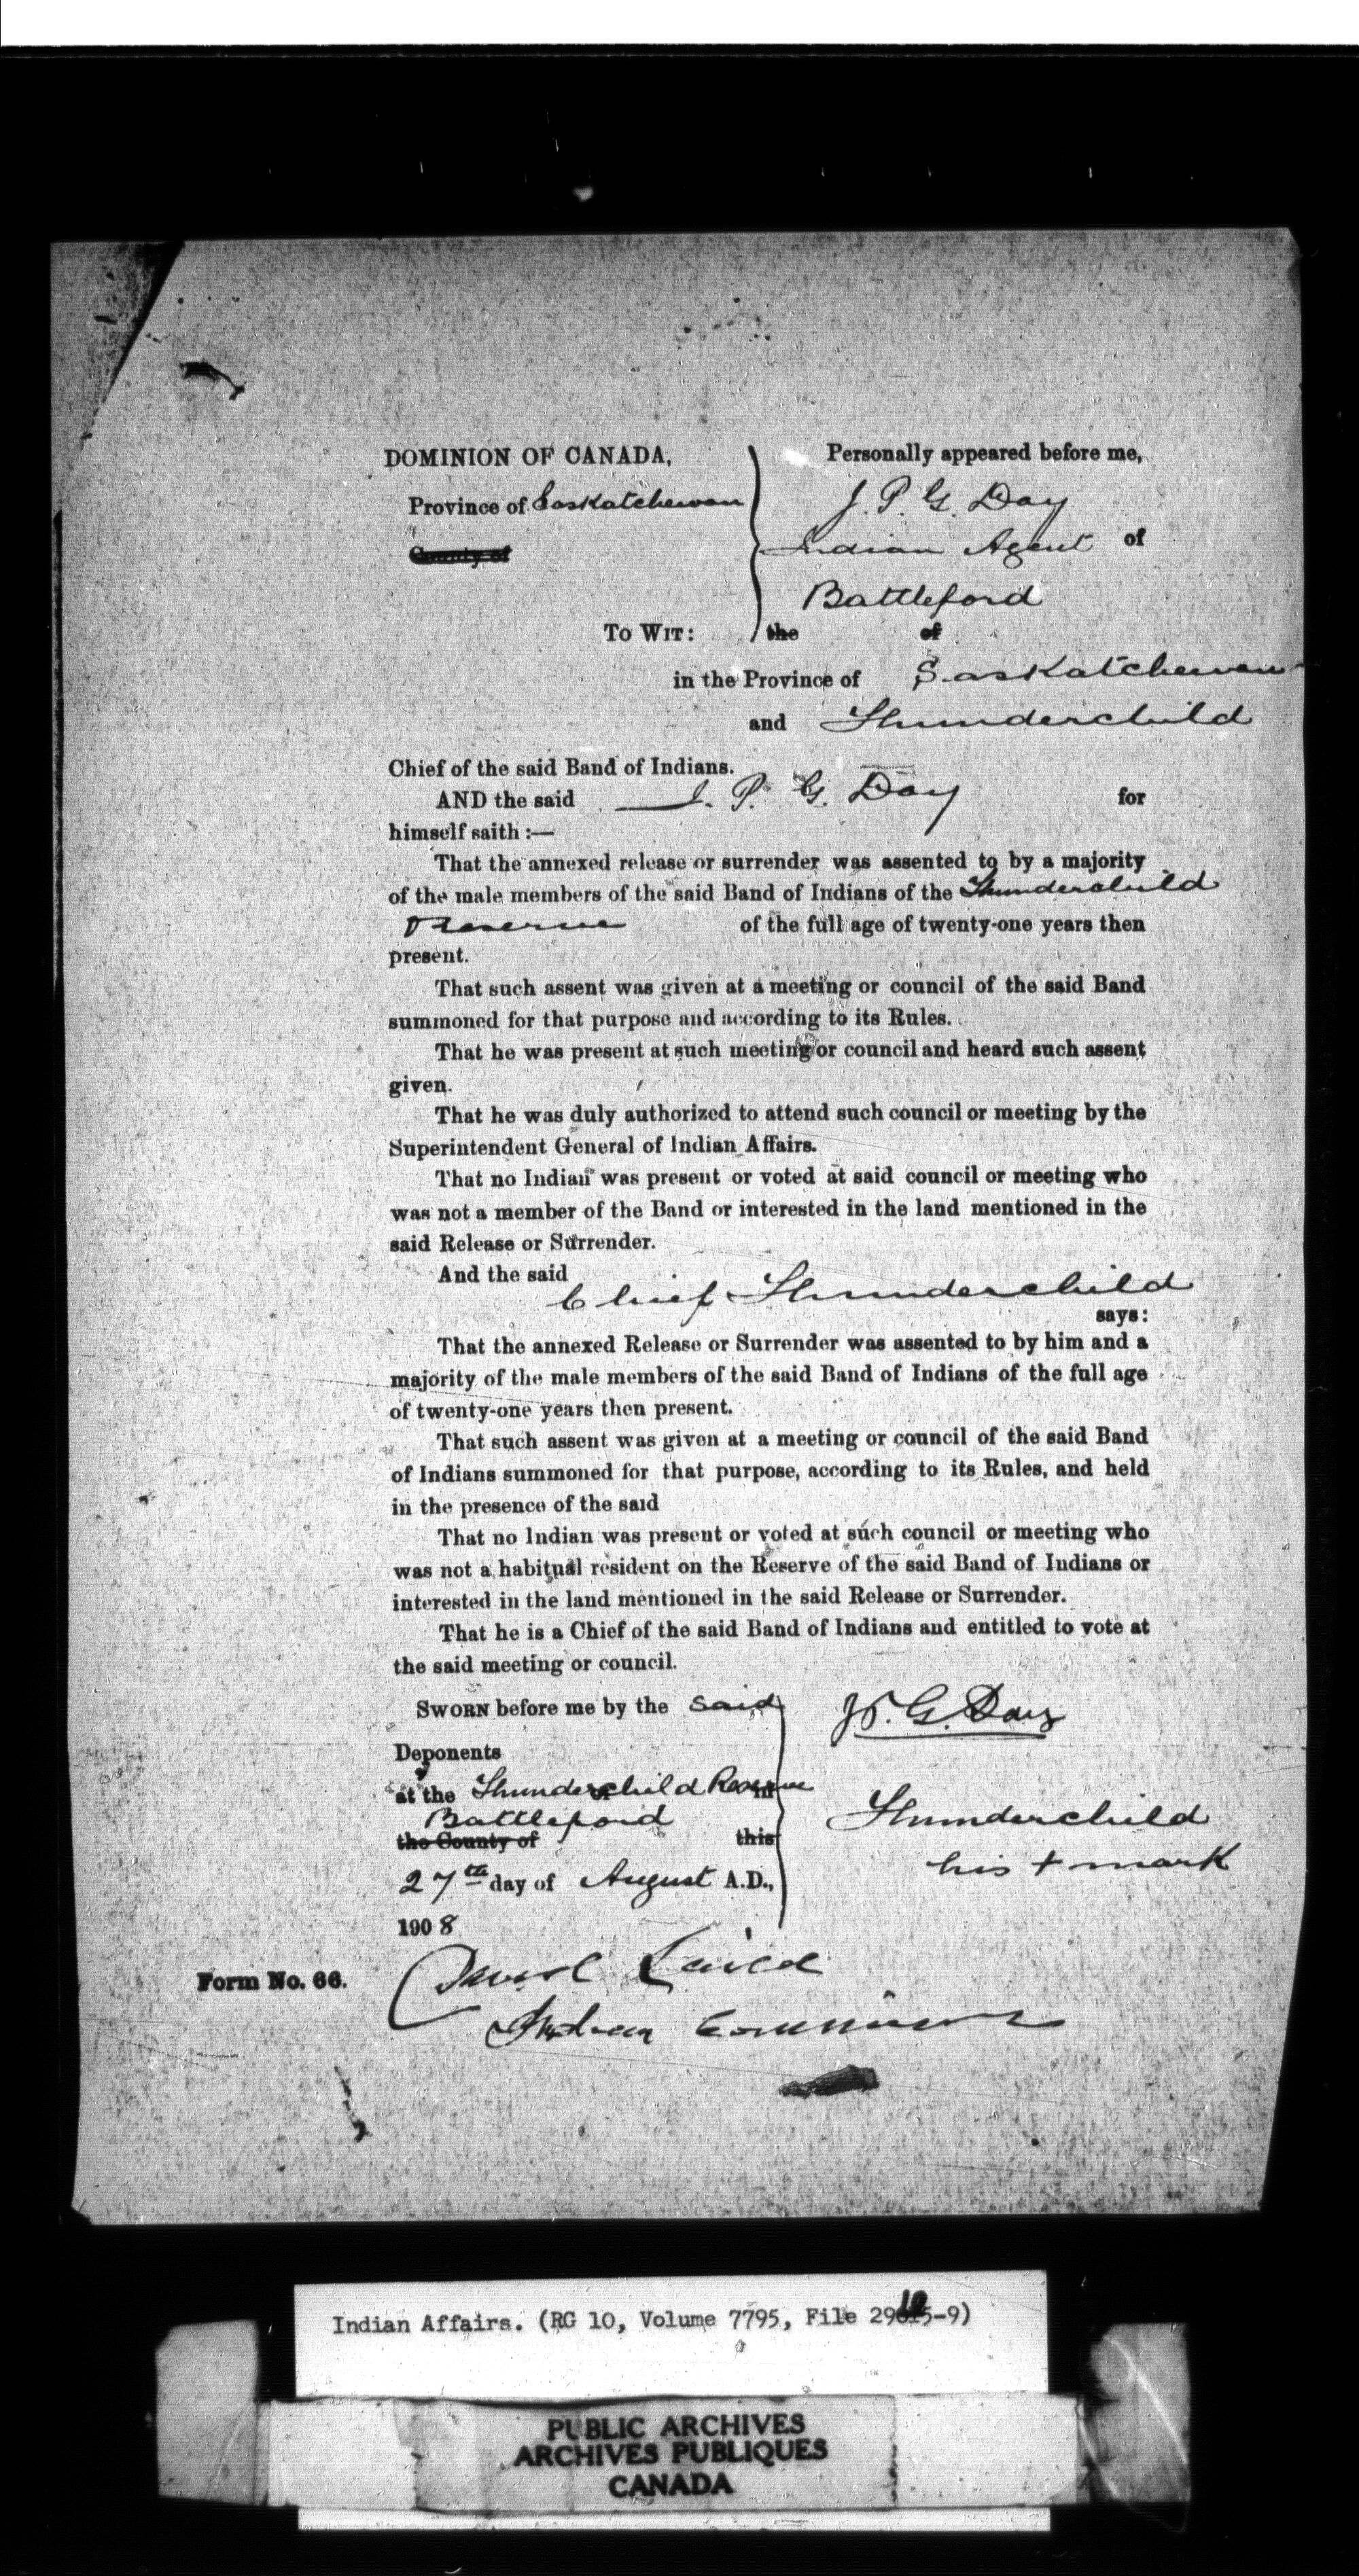 DOMINION OF CANADA,
Province of Saskatchewan
County of
TO WIT:
Personally appeared before me,
J. P. G. Day
Indian Agent of
Battleford
the of
in the Province of Saskatchewan
and Thunderchild
Chief of the said Band of Indians.
AND the said J. P. G. Day for
himself saith :—
That the annexed release or surrender was assented to by a majority
of the male members of the said Band of Indians of the Thunderchild
Reserve of the full age of twenty-one years then
present.
That such assent was given at a meeting or council of the said Band
summoned for that purpose and according to its Rules.
That he was present at such meeting or council and heard such assent
given.
That he was duly authorized to attend such council or meeting by the
Superintendent General of Indian Affairs.
That no Indian was present or voted at said council or meeting who
was not a member of the Band or interested in the land mentioned in the
said Release or Surrender.
And the said
Chief Thunderchild
says:
That the annexed Release or Surrender was assented to by him and a
majority of the male members of the said Band of Indians of the full age
of twenty-one years then present.
That such assent was given at a meeting or council of the said Band
of Indians summoned for that purpose, according to its Rules, and held
in the presence of the said
That no Indian was present or voted at such council or meeting who
was not a habitual resident on the Reserve of the said Band of Indians or
interested in the land mentioned in the said Release or Surrender.
That he is a Chief of the said Band of Indians and entitled to vote at
the said meeting or council.
SWORN before me by the said
Deponents
at the Thunderchild Reserve in
Battleford
the County of this
27th day of August A.D.,
1908
J. P. G. Day
Thunderchild
his + mark
David Laird
Indian Commissioner
Form No. 66.
Indian Affairs. (RG 10, Volume 7795, File 29105-9)
PUBLIC ARCHIVES
ARCHIVES PUBLIQUES
CANADA